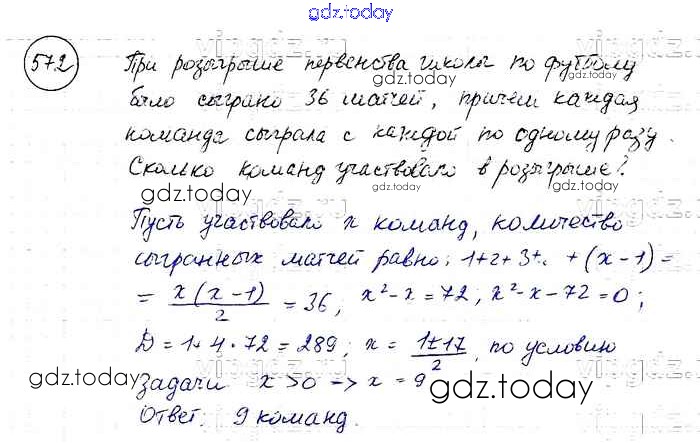 gdz.today
572
При розыгрыше первенства школы по футболу
gdz.today
gdz.today
было сыграно 36 матчей, причем каждая
команда сыграла с каждой по одному разу.
gdz.today
Сколько команд участвовало в розыгрыше?
gdz.today
gdz.today
Пусть участвовало x команд, количество
сыгранных матчей равно: 1+2+3+.. +(x-1)=
= x(x-1)/2 = 36; x²-x=72; x²-x-72=0;
gdz.today
gdz.today
D=1+4·72=289; x = 1±17/2, по условию
задачи x>0 -> x=9
gdz.today
gdz.today
Ответ. 9 команд.